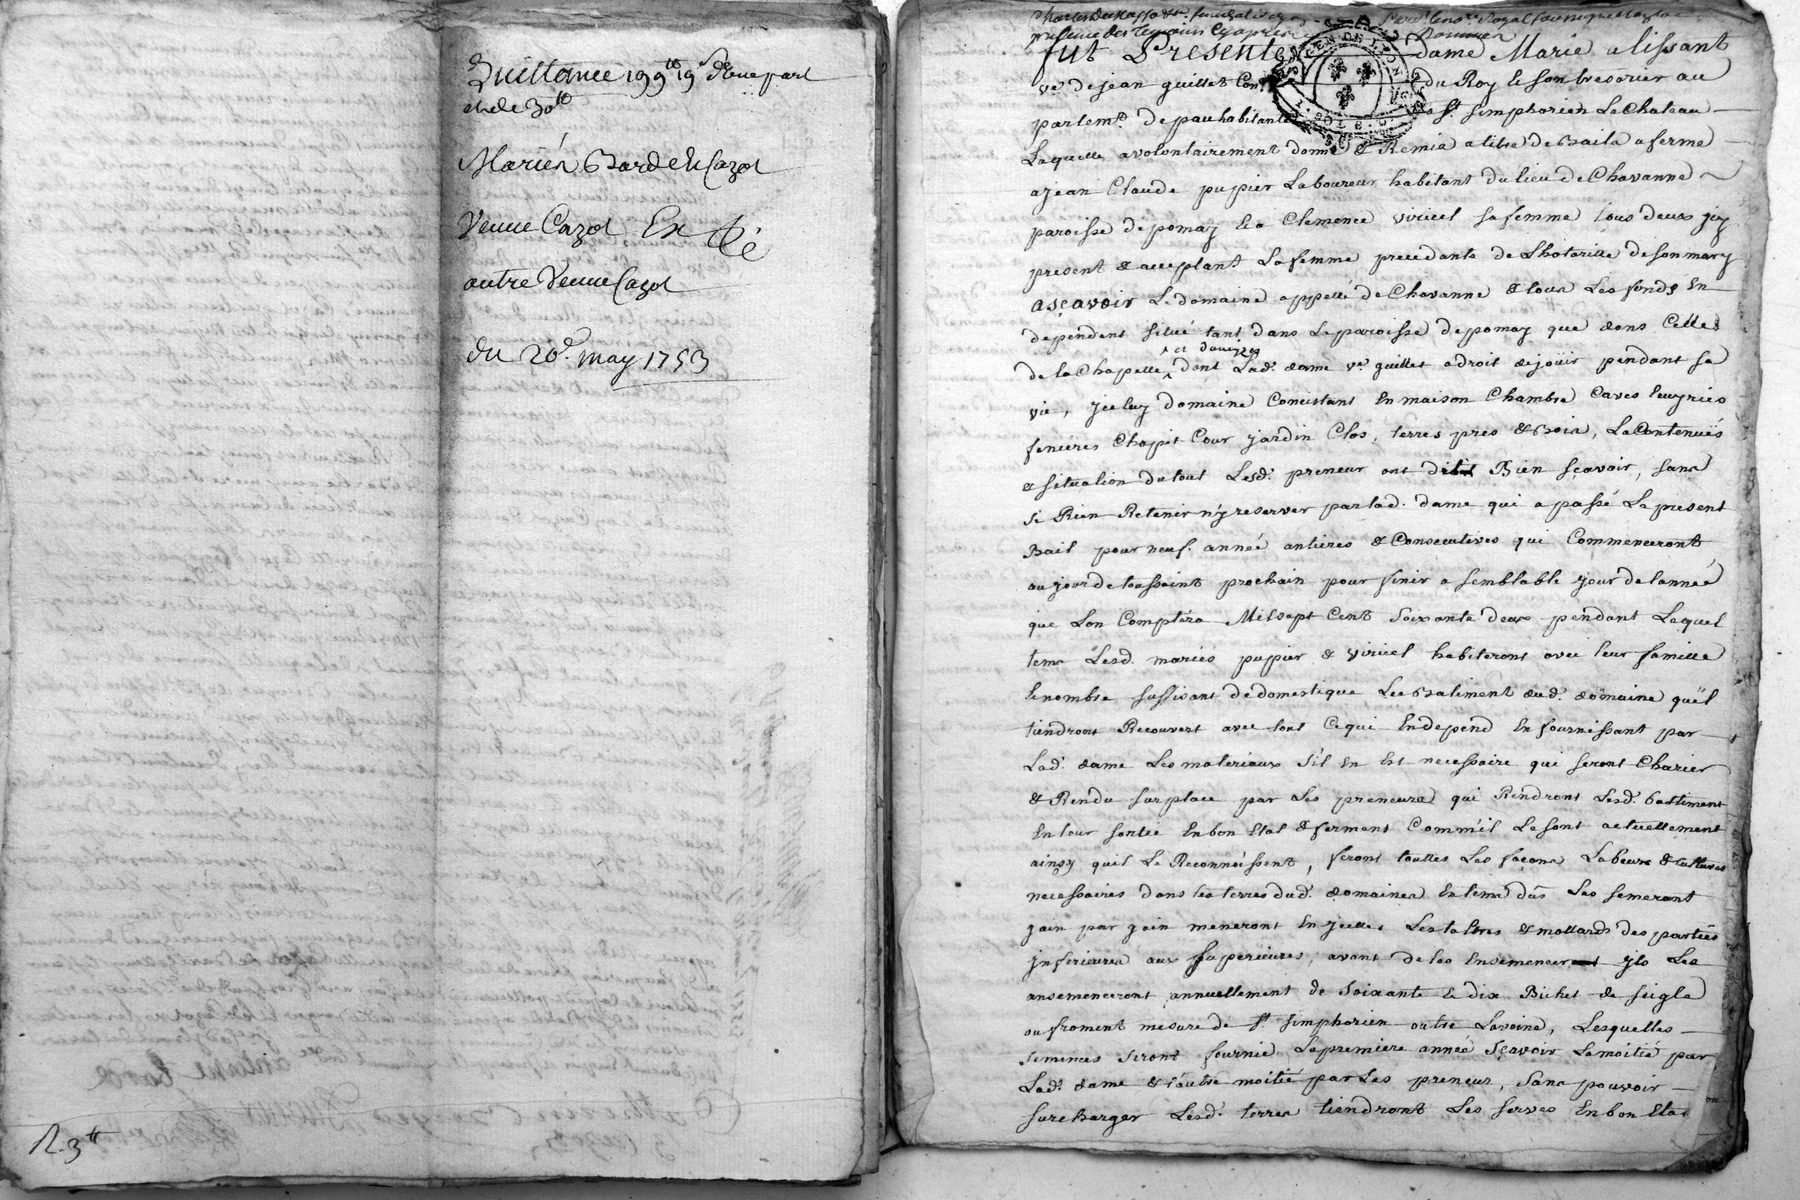 Quittance 199ˡᵗ 19ˢ d'une part
et de 30ˡᵗ
Mariés Bardel Cazot
Veuve Cazot Et
autre Veuve Cazot
du 20ᵉ. may 1753
R. 3ˡᵗ
présence des témoins cy après
fut Presente dame Marie alissant
vᵉ de jean guillet Conʳ du Roy & son tresorier au
parlemᵗ. de pau habitante St. simphorien Le Chateau
Laquelle a volontairement donné & Remis a titre de Bail a ferme
a jean Claude pupier Laboureur habitant du lieu de Chavanne
paroisse de pomay & a Clemence viricel sa femme tous deux jcy
present & acceptant La femme procedante de Lhotorille de son mary
asçavoir Le domaine appellé de Chavanne & tous Les fonds En
dependent situé tant dans La paroisse de pomay que dans Celles
de la Chapelle, dont Lad. dame vᵉ guillet a droit de joüir pendant sa
vie, jceluy domaine Concistant En maison Chambre Caves Ecuyries
fenieres Chapit Cour jardin Clos, terres prés & Bois, La Contenuës
& situation du tout Lesd. preneur ont dit Bien sçavoir, sans
si Rien Retenir n'y reserver par lad. dame qui a passé Le present
Bail pour neuf. année antieres & Consecutives qui Commenceront
au jour de toussaint prochain pour finir a semblable jour de lannée
que Lon Comptera Mil sept Cent soixante deux pendant Lequel
tems Lesd. mariés pupier & viricel habiteront avec leur famille
& nombre suffisant de domestique Les Batiment dud. domaine qu'il
tiendront Recouvert avec tout Ce qui En depend En fournissant par
Lad. dame Les materiaux s'il En Est necessaire qui seront Charier
& Rendu sur place par Les preneurs qui Rendront Lesd. battiment
En leur sortie En bon Etat & ferment Comm'il Le sont actuellement
ainsy quil Le Reconnoissent, feront touttes Les façons Labeurs & cultures
necessaires dans les terres dud. domaines En tems dûs Les semeront
gain par gain meneront En jcelles Les taltres & mottards des parties
jnferieures aux superieures, avant de les Ensemencer jls Les
ansemenceront annuellement de soixante & dix Bichet de sigle
ou froment mesure de St. simphorien outre Lavoine, Lesquelles
semences seront fournie La premiere année sçavoir La moitié par
Lad. dame & l'autre moitié par Les preneur, sans pouvoir
surcharger Lesd. terres tiendront Les serves En bon Etat